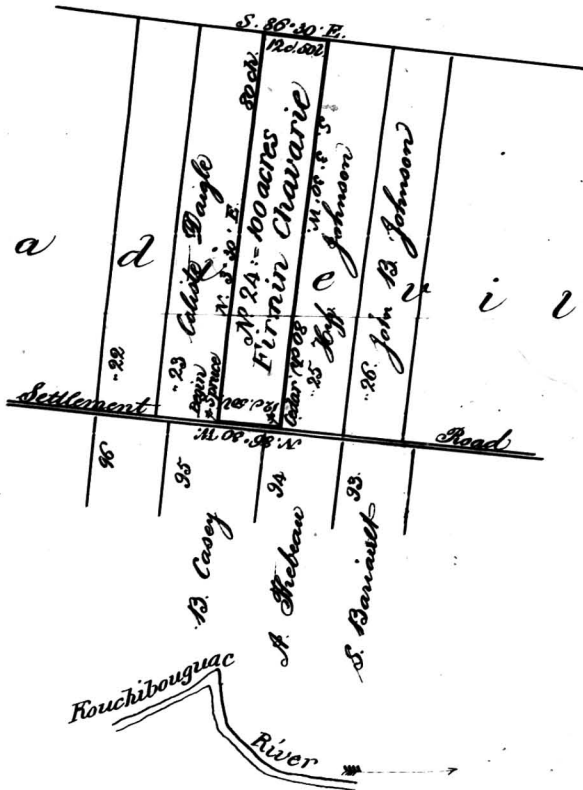 S. 86° 30' E.
12 ch. 50 l.
80 ch.
a d i e v i l l
"22
"23 Caliste Daigle
N. 3° 30' E.
No 24 := 100 acres
Firmin Chavarie
S. 3° 30' W.
"25 Hyp. Johnson
"26 John B. Johnson
Begin
Spruce
12 ch. 50 l.
Cedar
Settlement Road
N. 86° 30' W.
96
95
94
93
B. Casey
A. Thebeau
S. Bariault
Kouchibouguac
River